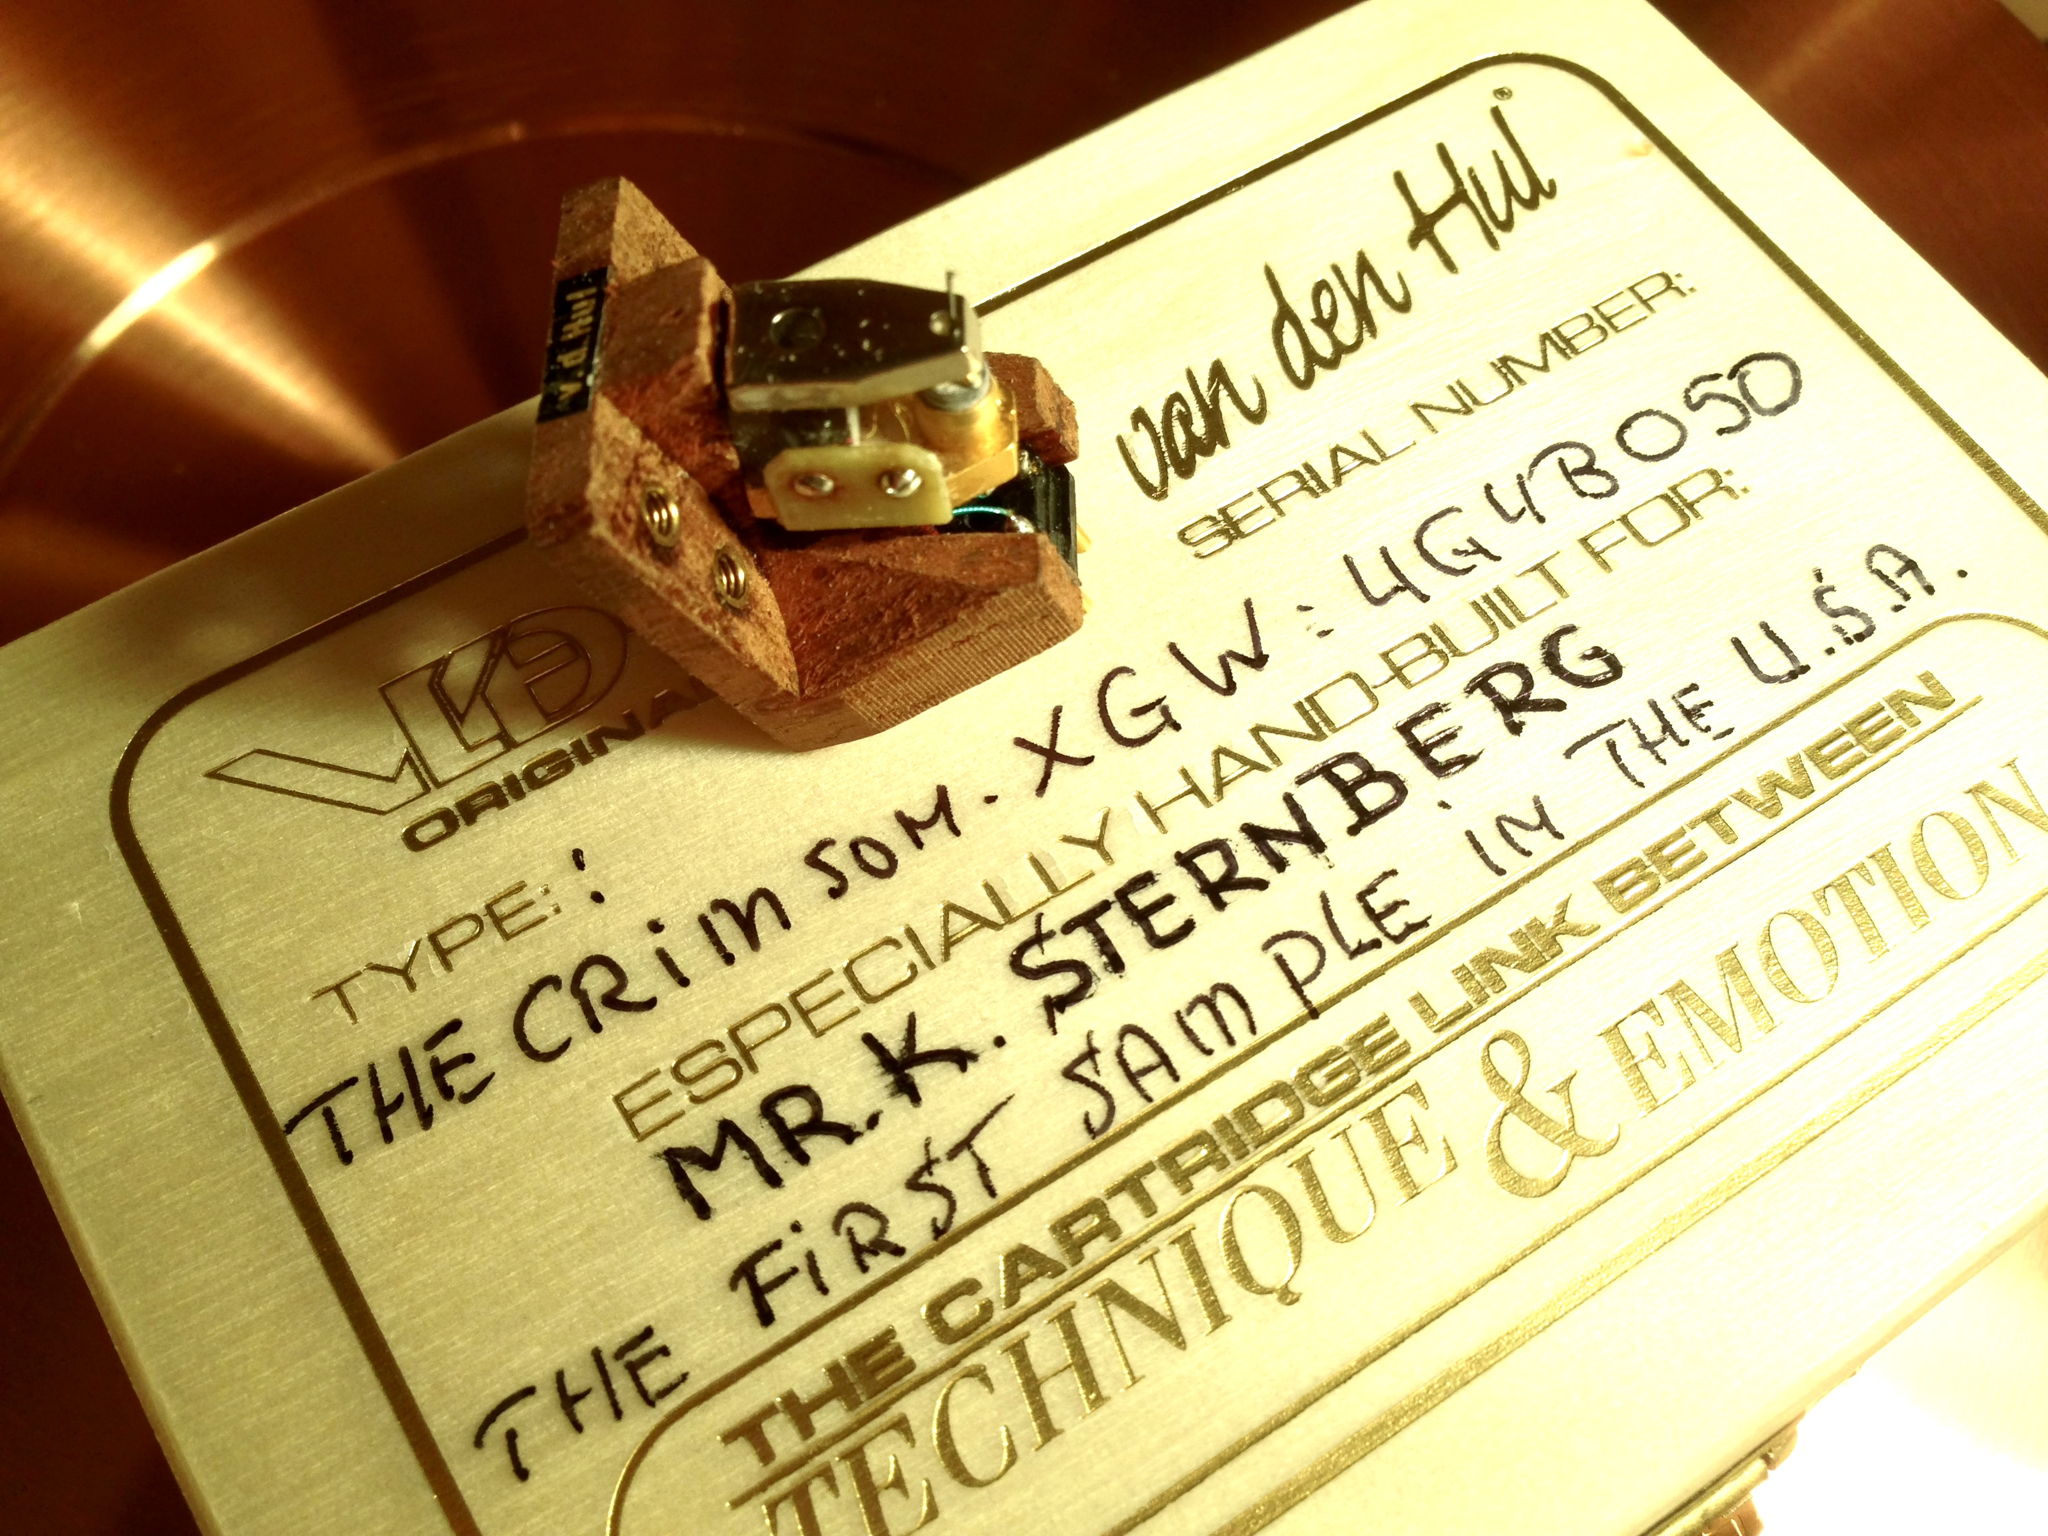 van den Hul®
v.d.Hul
SERIAL NUMBER:
VDH
ORIGINAL
TYPE: :
THE CRIMSON. XGW: 4G4B050
ESPECIALLY HAND-BUILT FOR:
MR. K. STERNBERG
THE FIRST SAMPLE IN THE U.S.A.
THE CARTRIDGE LINK BETWEEN
TECHNIQUE & EMOTION